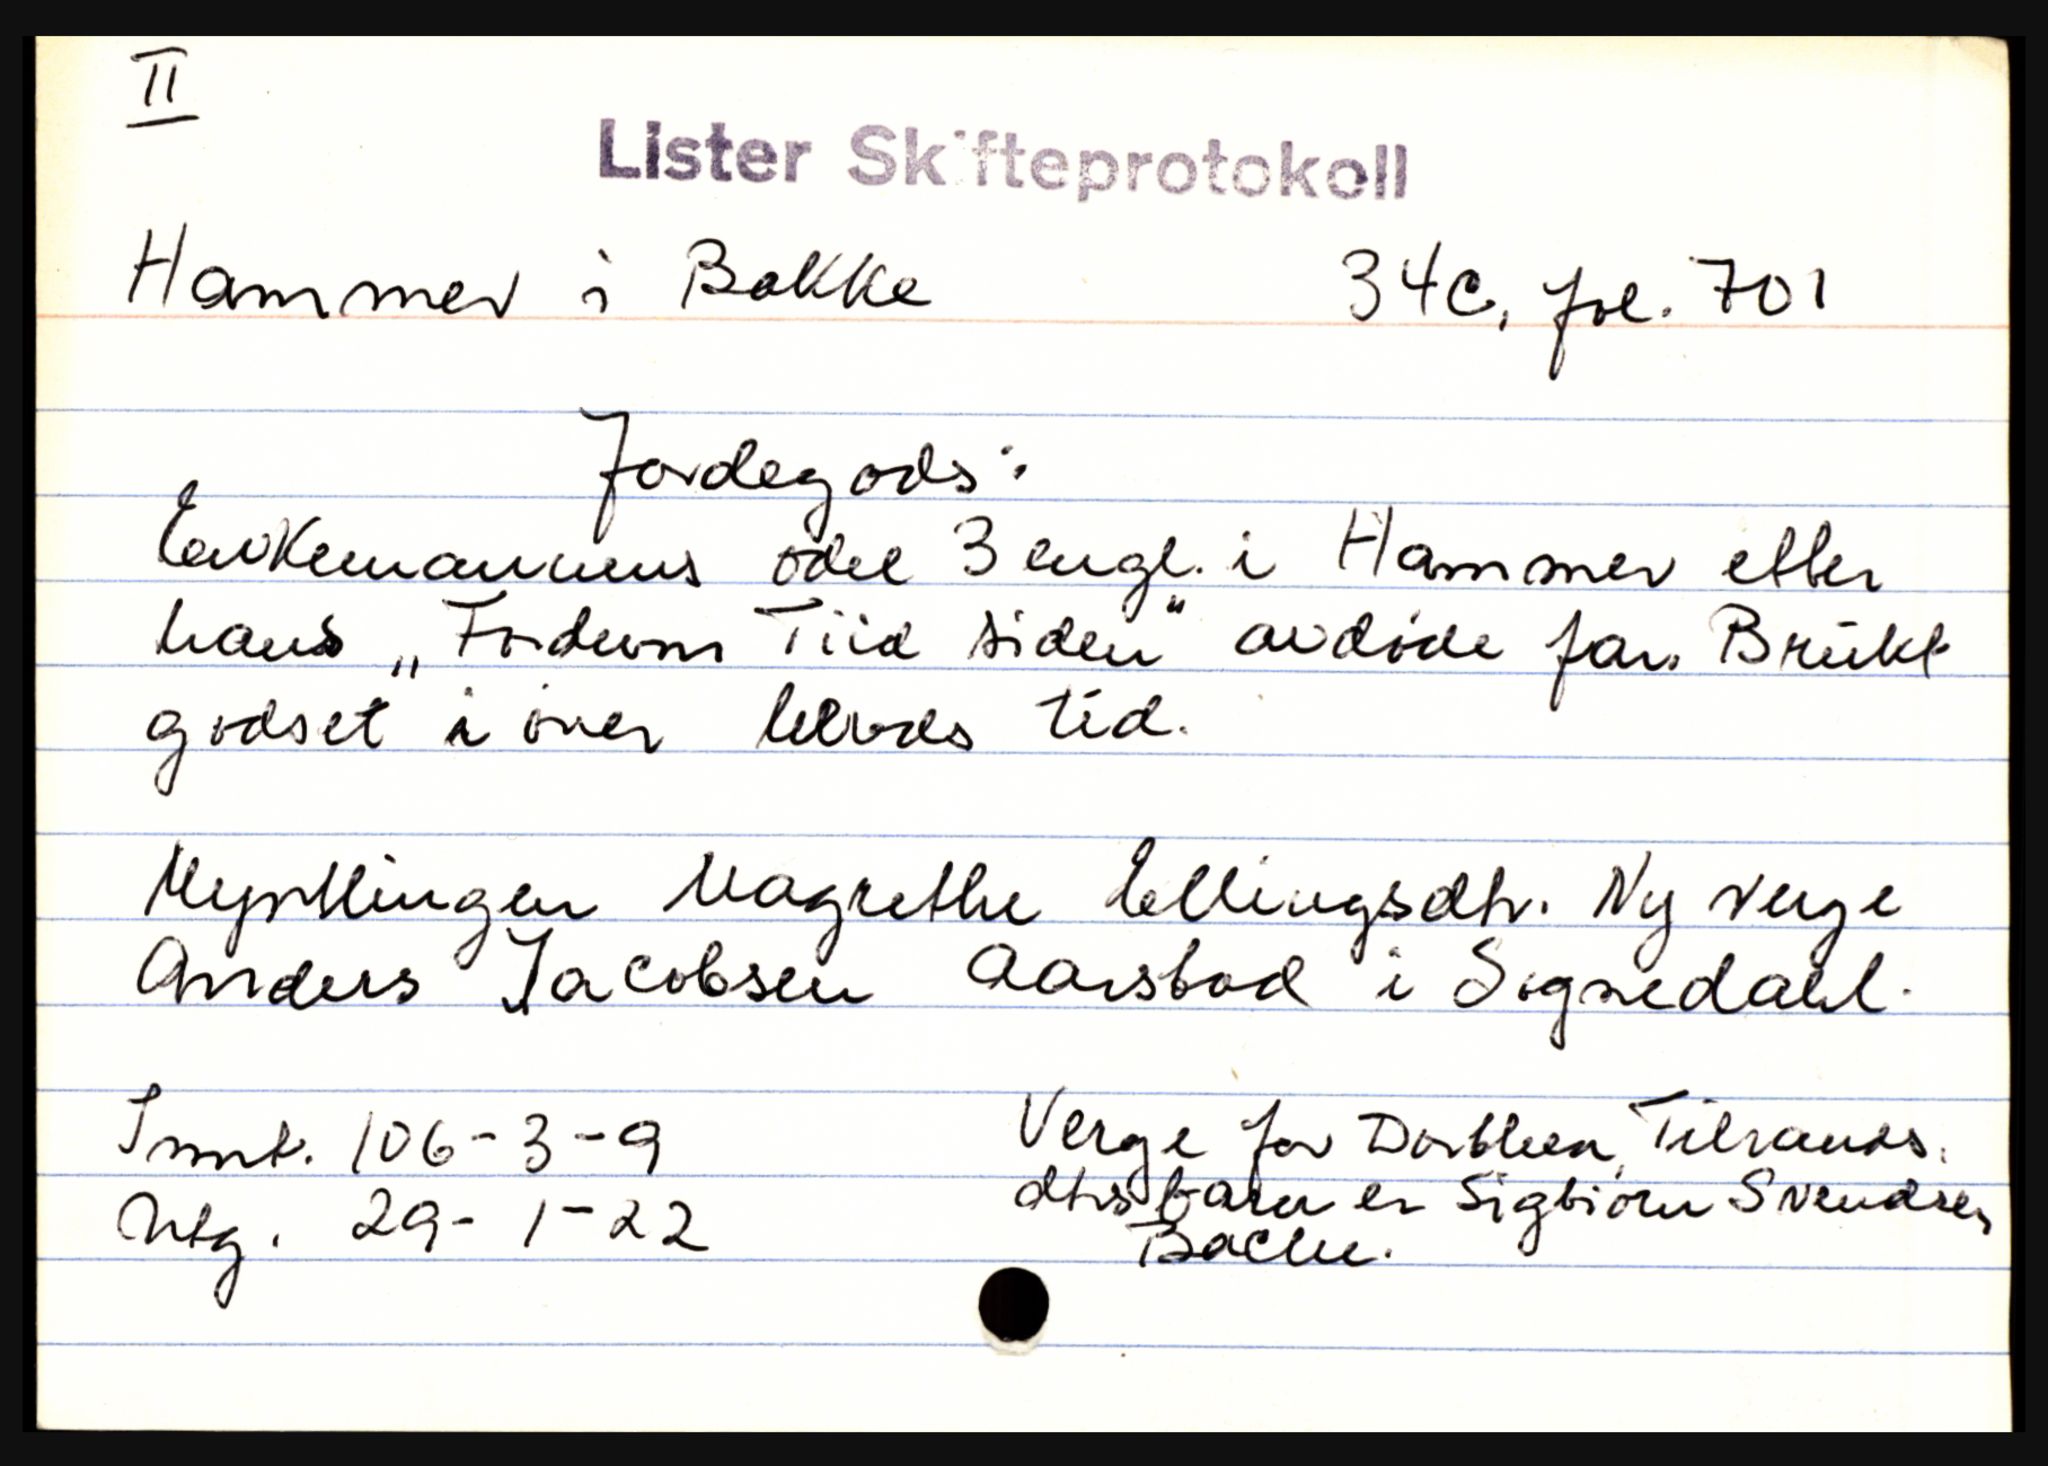 II
Lister Skifteprotokoll
Hammer i Bakke 34c, fol. 701
Jordegods:
Enkemannens odel 3 engl. i Hammer etter
hans „Fordum Tiid siden" avdøde far. Brukt
godset i over hevds tid.
Myntlingen Magrethe Ellingsdtr. Ny verge
Anders Jacobsen Aarsbod i Sognedahl.
Innt. 106-3-9
Utg. 29-1-22
Verge for Dorthea Tilrands.
dtrs barn er Sigbiørn Svendsen
Bache.